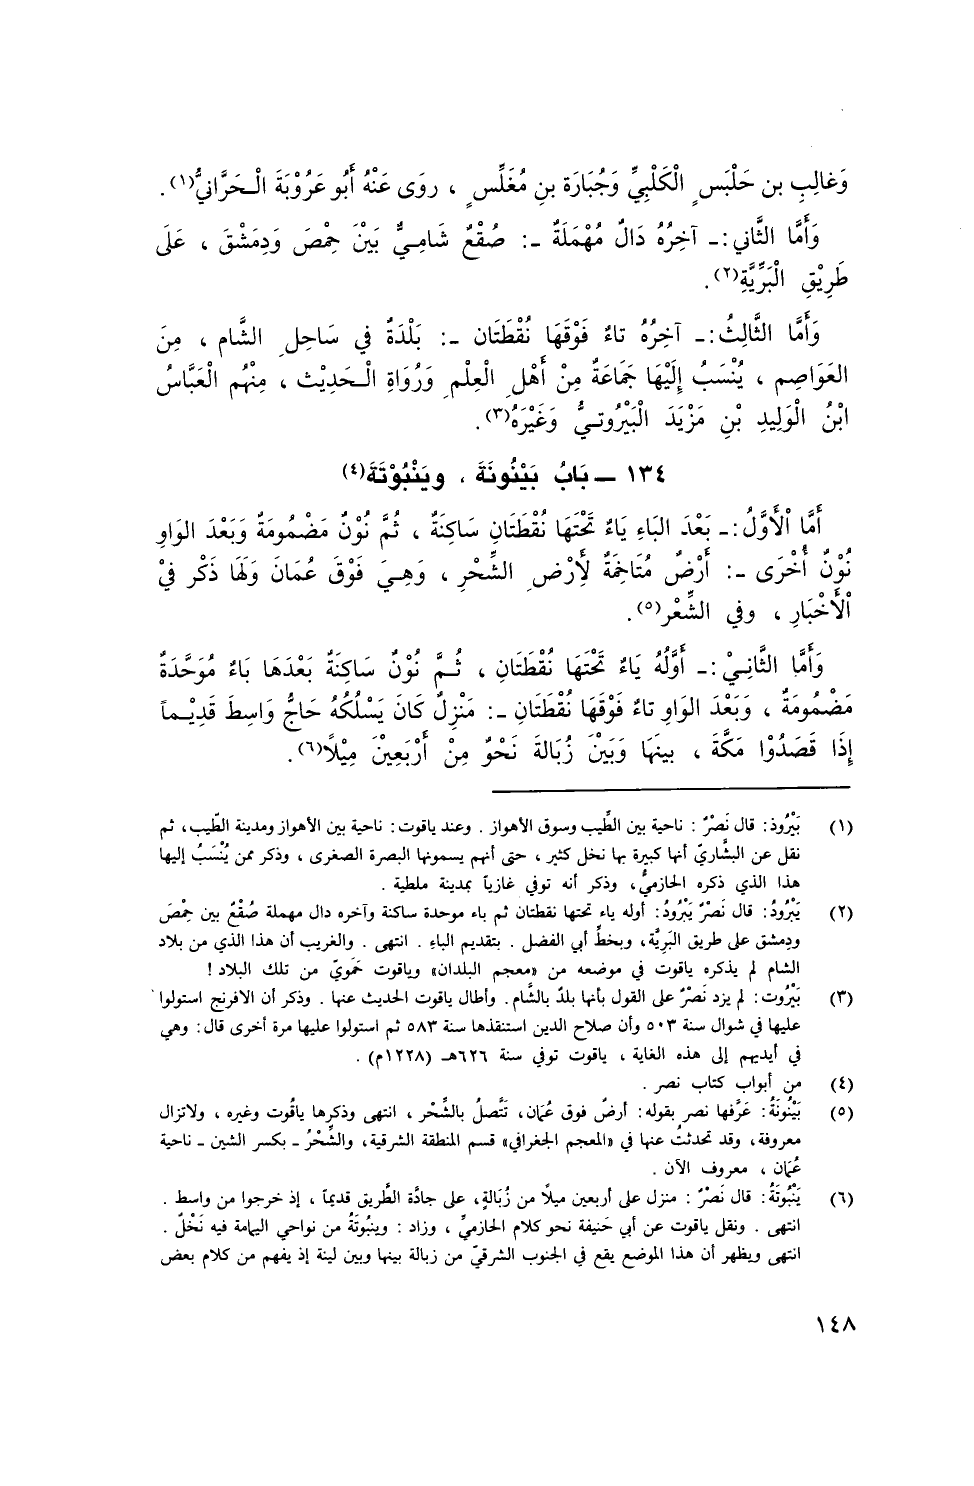 وَغالِبِ بن حَلْبَسٍ الْكَلْبِيِّ وَجُبَارَة بنِ مُغَلِّسٍ ، روَى عَنْهُ أَبُو عَرُوْبَةَ الْـحَرَّانيُّ(١).
وَأَمَّا الثَّاني :ـ آخِرُهُ دَالٌ مُهْمَلَةٌ ـ: صُقْعٌ شَامِيٌّ بَيْنَ حِمْصَ وَدِمَشْقَ ، عَلَى
طَرِيْقِ الْبَرِّيَّةِ(٢).
وَأَمَّا الثَّالِثُ :ـ آخِرُهُ تاءٌ فَوْقَهَا نُقْطَتَان ـ: بَلْدَةٌ في سَاحِلِ الشَّام ، مِنَ
العَوَاصِم ، يُنْسَبُ إِلَيْهَا جَمَاعَةٌ مِنْ أَهْلِ الْعِلْمِ وَرُوَاةِ الْـحَدِيْث ، مِنْهُم الْعَبَّاسُ
ابْنُ الْوَلِيدِ بْنِ مَزْيَدَ الْبَيْرُوتـيُّ وَغَيْرُهُ(٣).
١٣٤ ــ بَابُ بَيْنُونَةَ ، ويَنْبُوْتَةَ(٤)
أَمَّا اْلأَوَّلُ :ـ بَعْدَ البَاءِ يَاءٌ تَحْتَهَا نُقْطَتَانِ سَاكِنَةٌ ، ثُمَّ نُوْنٌ مَضْمُومَةٌ وَبَعْدَ الوَاوِ
نُوْنٌ أُخْرَى ـ: أَرْضٌ مُتَاخِمَةٌ لِأَرْضِ الشِّحْرِ ، وَهِيَ فَوْقَ عُمَانَ وَلَهَا ذَكْر فيْ
اْلأَخْبَارِ ، وفي الشِّعْر(٥).
وَأَمَّا الثَّانِيْ :ـ أَوَّلُهُ يَاءٌ تَحْتَهَا نُقْطَتَانِ ، ثُـمَّ نُوْنٌ سَاكِنَةٌ بَعْدَهَا بَاءٌ مُوَحَّدَةٌ
مَضْمُومَةٌ ، وَبَعْدَ الوَاوِ تاءٌ فَوْقَهَا نُقْطَتَانِ ـ: مَنْزِلٌ كَانَ يَسْلُكُهُ حَاجُّ وَاسِطَ قَدِيْـماً
إِذَا قَصَدُوْا مَكَّةَ ، بينَهَا وَبَيْنَ زُبَالَةَ نَحْوٌ مِنْ أَرْبَعِيْنَ مِيْلاً(٦).
(١) بَيْرُوذ: قال نَصْرٌ : ناحية بين الطِّيب وسوق الأهواز . وعند ياقوت: ناحية بين الأهواز ومدينة الطِّيب، ثم
نقل عن البشَّاريّ أنها كبيرة بها نخل كثير ، حتى أنهم يسمونها البصرة الصغرى ، وذكر ممن يُنْسَبُ إليها
هذا الذي ذكره الحازميُّ، وذكر أنه توفي غازياً بمدينة ملطية .
(٢) يَبْرُودُ: قال نَصْرٌ يَبْرُودُ: أوله ياء تحتها نقطتان ثم باء موحدة ساكنة وآخره دال مهملة صُقْعٌ بين حِمْصَ
ودِمشق على طريق البَرِيَّة، وبخطِّ أبي الفضل . بتقديم الباء . انتهى . والغريب أن هذا الذي من بلاد
الشام لم يذكره ياقوت في موضعه من «معجم البلدان» وياقوت حَمَويّ من تلك البلاد !
(٣) بَيْرُوت: لم يزد نَصْرٌ على القول بأنها بلدٌ بالشَّام. وأطال ياقوت الحديث عنها . وذكر أن الافرنج استولوا
عليها في شوال سنة ٥٠٣ وأن صلاح الدين استنقذها سنة ٥٨٣ ثم استولوا عليها مرة أخرى قال: وهي
في أيديهم إلى هذه الغاية ، ياقوت توفي سنة ٦٢٦هـ (١٢٢٨م) .
(٤) من أبواب كتاب نصر .
(٥) بَيْنُونَةُ: عَرَّفها نصر بقوله: أرضٌ فوق عُمَان، تَتَّصلُ بالشَّحْر ، انتهى وذكرها ياقُوت وغيره ، ولاتزال
معروفة، وقد تحدثتُ عنها في «المعجم الجغرافي» قسم المنطقة الشرقية، والشِّحْرُ ـ بكسر الشين ـ ناحية
عُمَان ، معروف الآن .
(٦) يَنْبُوتَةُ: قال نَصْرٌ : منزل على أربعين ميلاً من زُبَالةٍ، على جادَّة الطَّريق قديماً ، إذ خرجوا من واسط .
انتهى . ونقل ياقوت عن أبي حَنيفة نحو كلام الحازميِّ ، وزاد : وينبُوتَةُ من نواحي اليمامة فيه نَخْلٌ .
انتهى ويظهر أن هذا الموضع يقع في الجنوب الشرقيّ من زبالة بينها وبين لينة إذ يفهم من كلام بعض
١٤٨